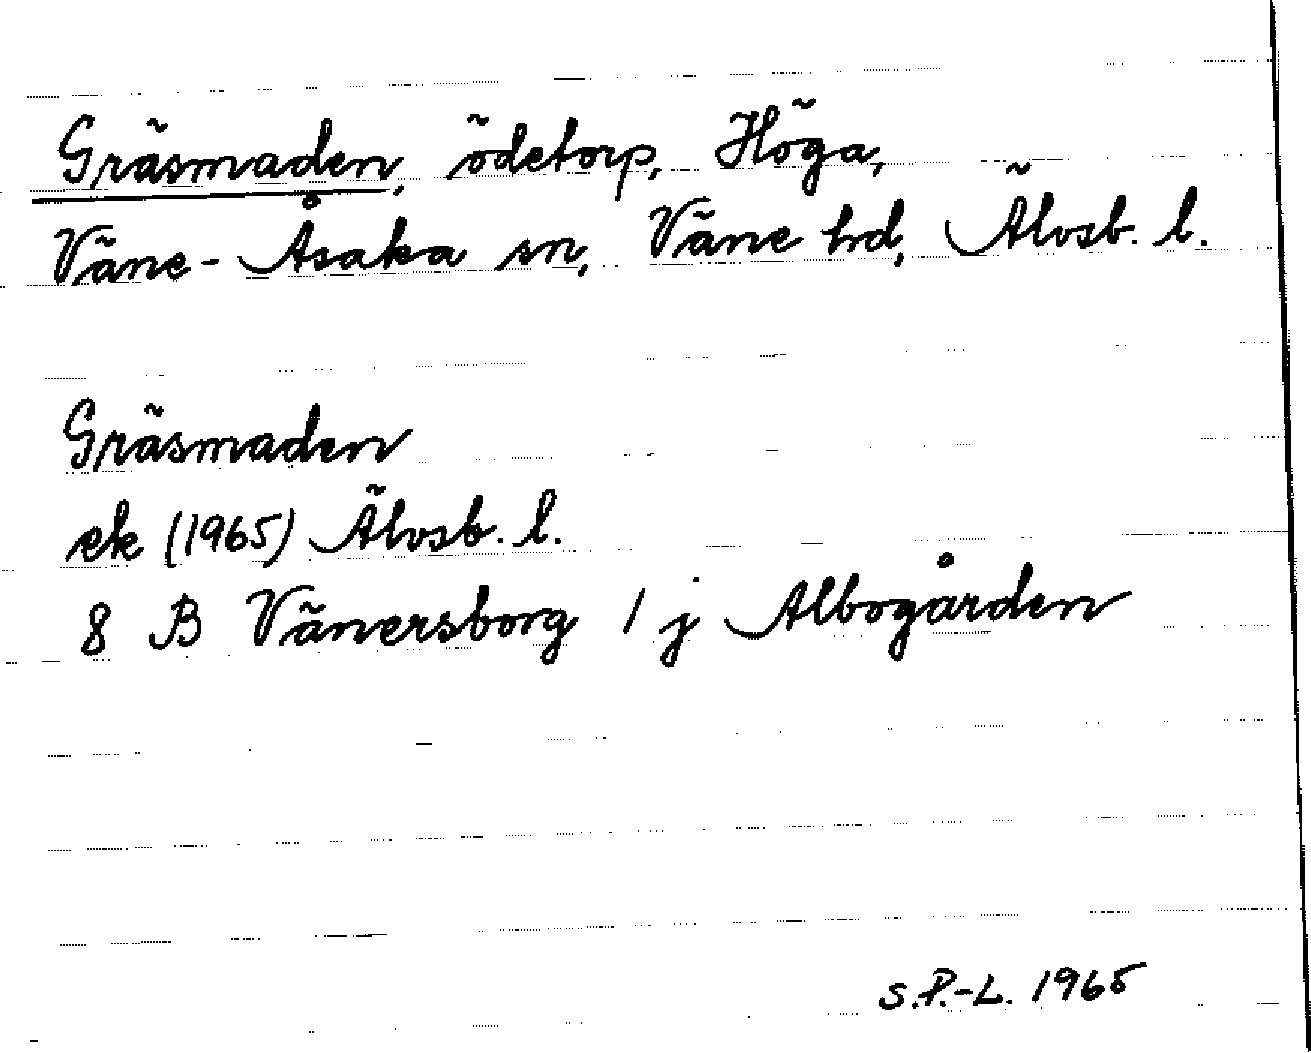 Gräsmaden, ödetorp, Höga,
Väne-Åsaka sn, Väne hd, Älvsb. l.
Gräsmaden
ek (1965) Älvsb. l.
8 B Vänersborg 1 j Albogården
S.P.-L. 1965